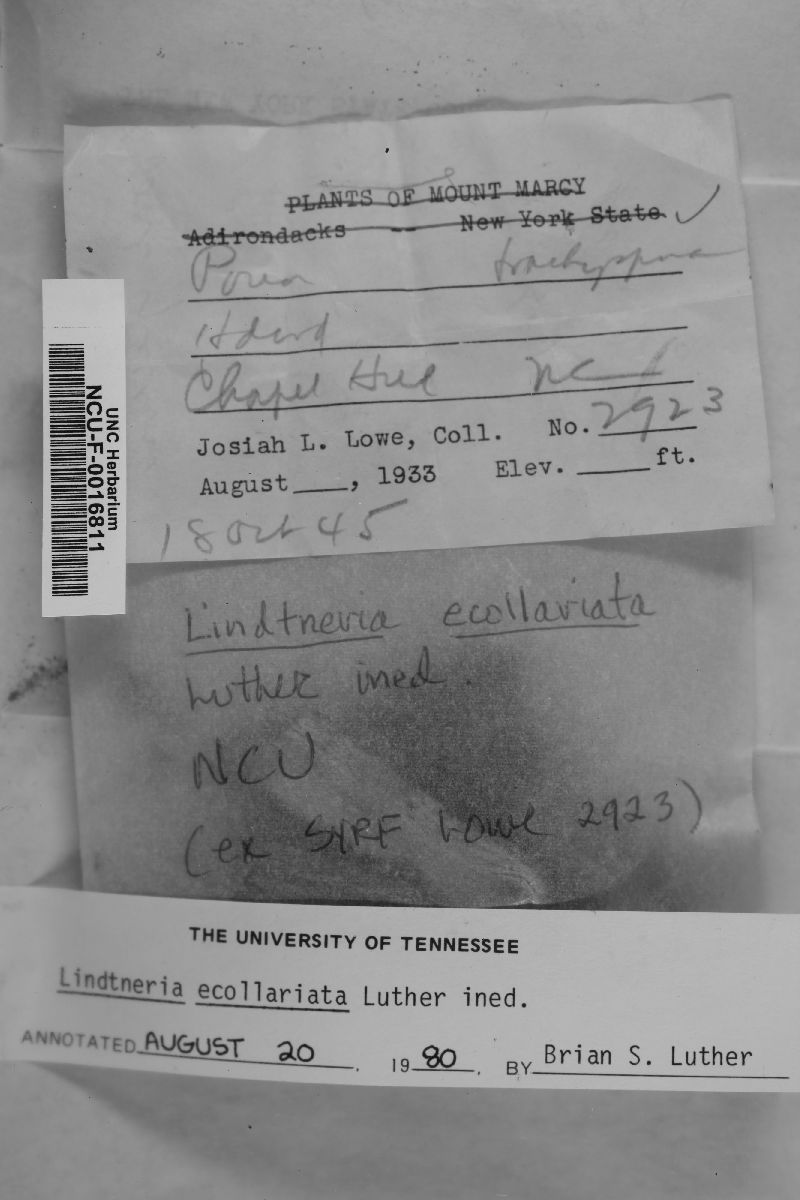 PLANTS OF MOUNT MARCY
Adirondacks -- New York State
Poria trachyspora
Hdwd
Chapel Hill NC
Josiah L. Lowe, Coll. No. 2923
August ____, 1933 Elev. ____ ft.
18 Oct 45
UNC Herbarium
NCU-F-0016811
Lindtneria ecollariata
Luther ined.
NCU
(ex SYRF Lowe 2923)
THE UNIVERSITY OF TENNESSEE
Lindtneria ecollariata Luther ined.
ANNOTATED AUGUST 20, 1980, BY Brian S. Luther